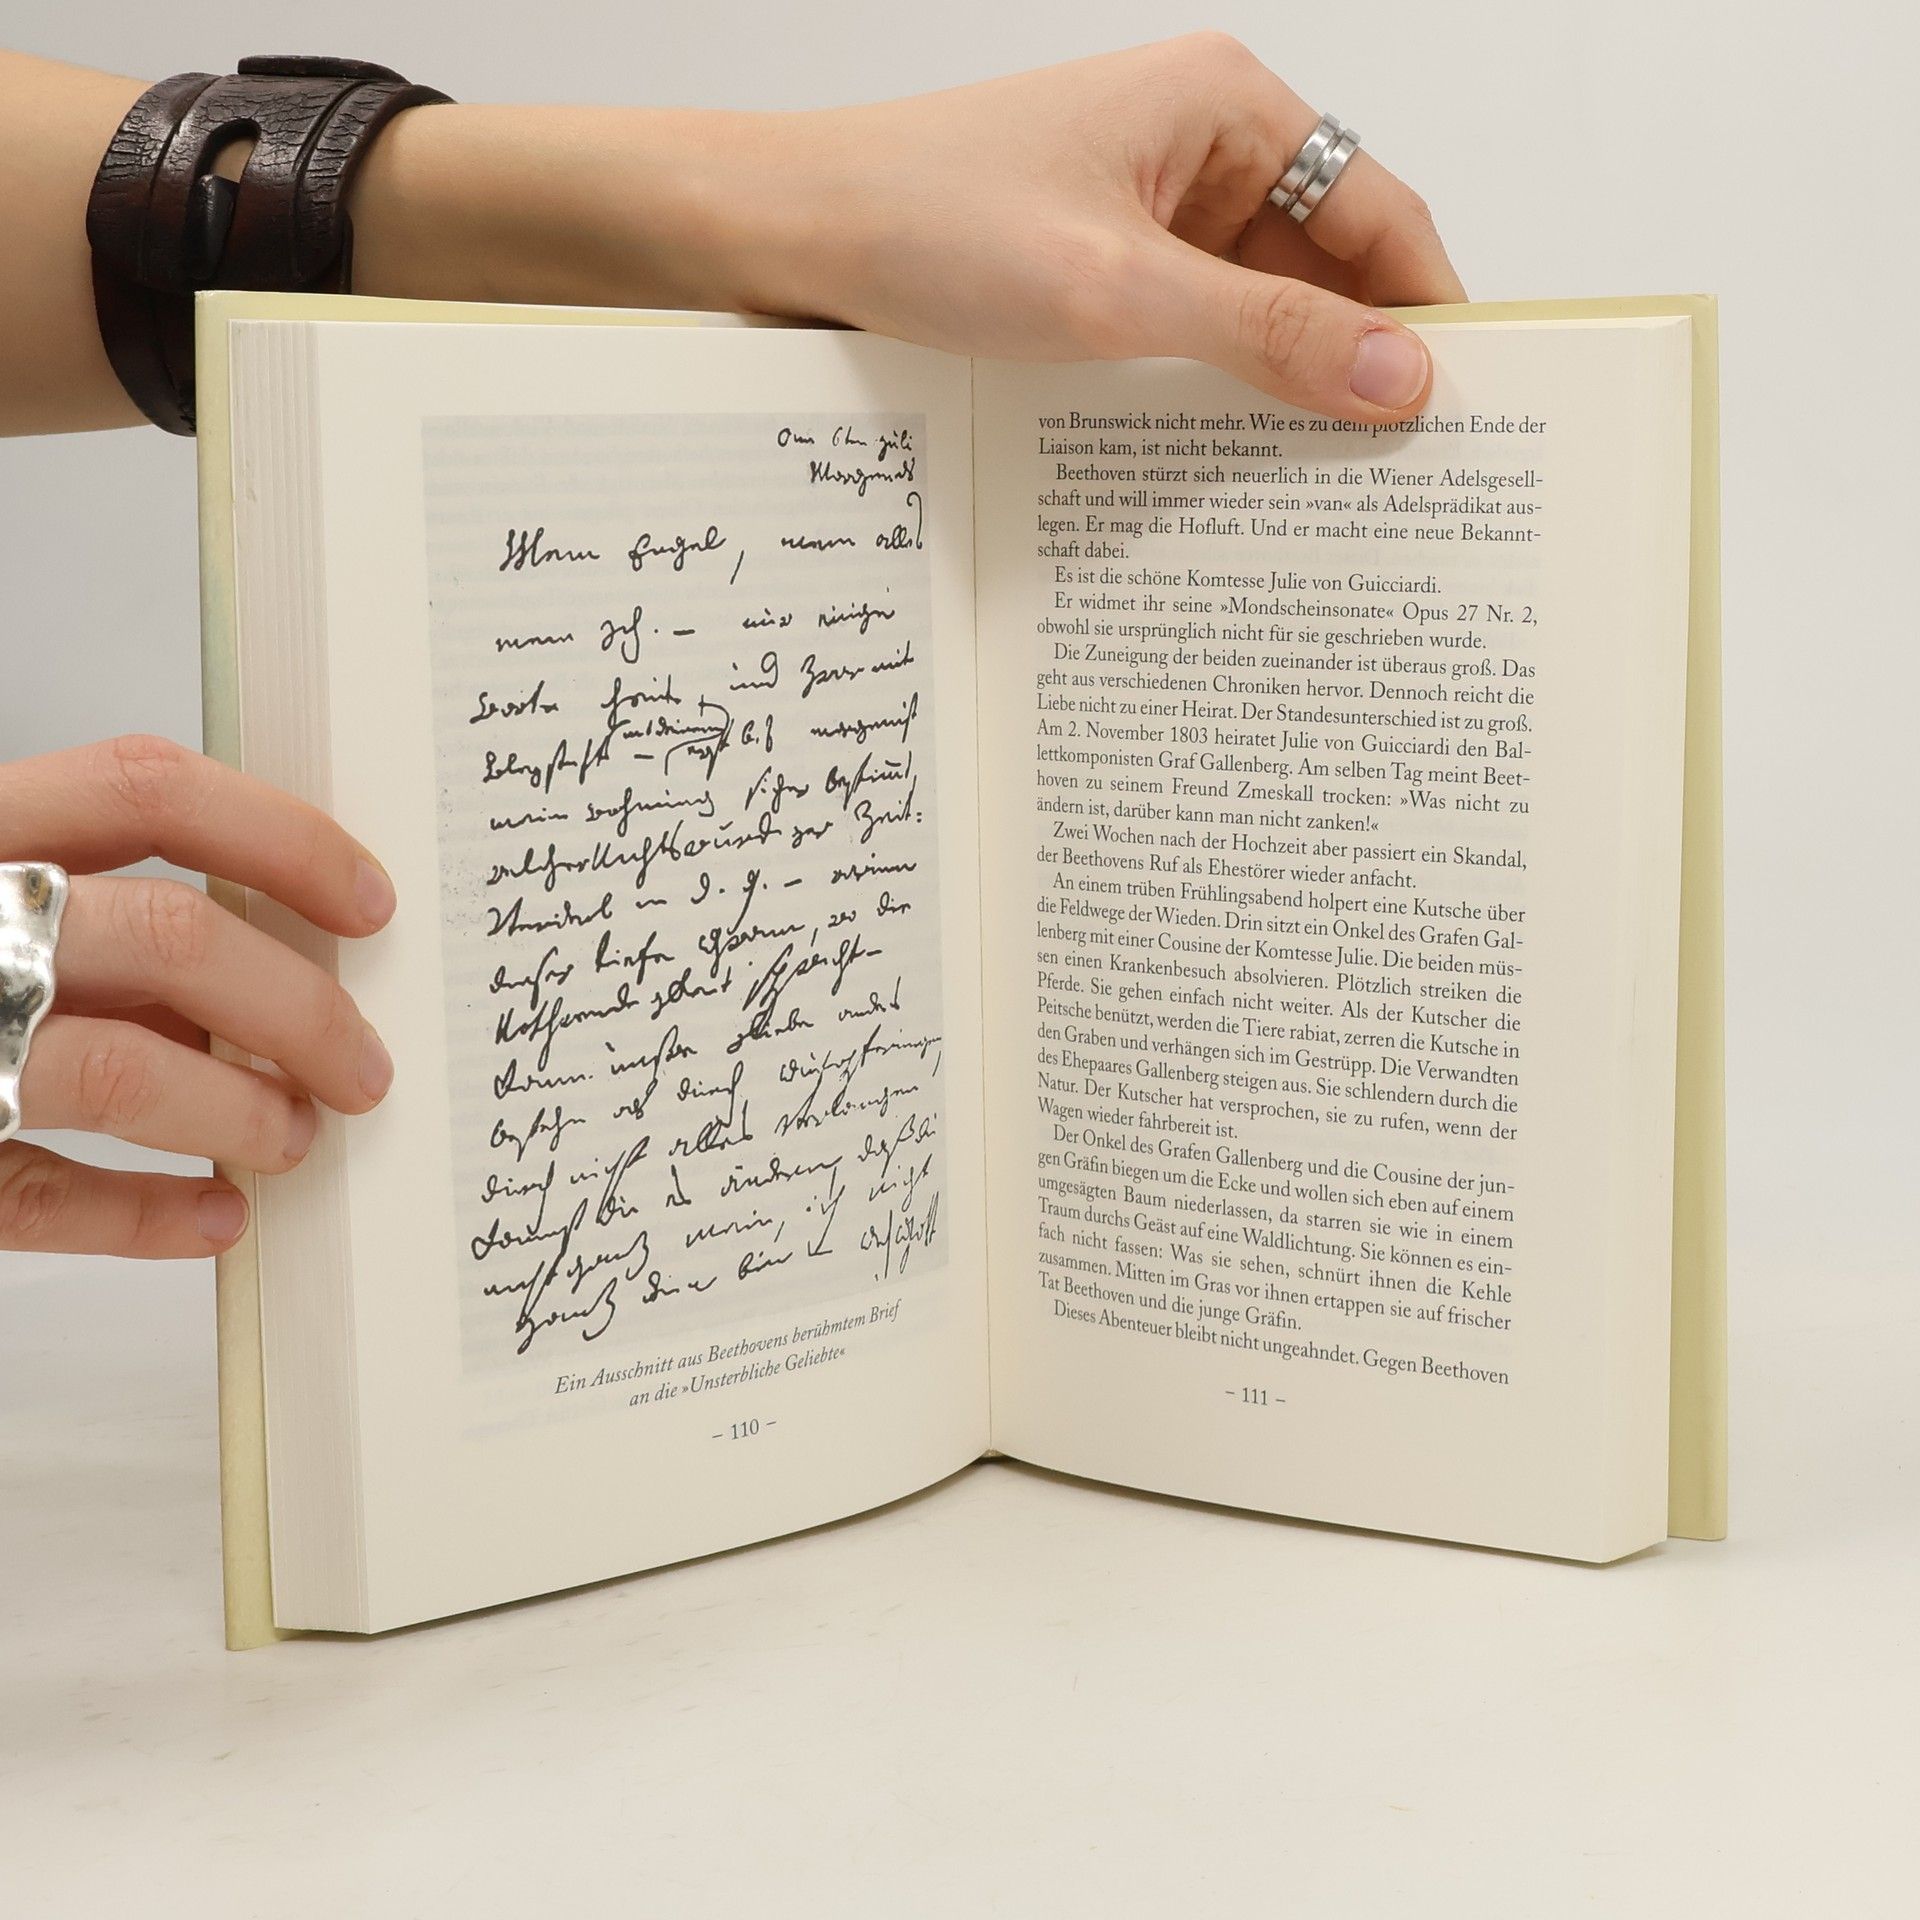 am 6ten juli
Morgends
Mein Engel, mein alles
mein Ich. – nur einige
Worte heute, und zwar mit
Bleystift – (mit deinem) erst bis morgen ist
meine Wohnung sicher bestimmt,
welcher Nichtswürdiger Zeit-
Verderb in d. g. – warum
dieser tiefe Gram, wo die
Nothwendigkeit spricht –
Kann unsre Liebe anders
bestehn als durch Aufopferungen,
durch nicht alles verlangen,
kannst du es ändern, daß du
nicht ganz mein, ich nicht
ganz dein bin – Ach Gott
Ein Ausschnitt aus Beethovens berühmtem Brief
an die »Unsterbliche Geliebte«
– 110 –
von Brunswick nicht mehr. Wie es zu dem plötzlichen Ende der
Liaison kam, ist nicht bekannt.
Beethoven stürzt sich neuerlich in die Wiener Adelsgesell-
schaft und will immer wieder sein »van« als Adelsprädikat aus-
legen. Er mag die Hofluft. Und er macht eine neue Bekannt-
schaft dabei.
Es ist die schöne Komtesse Julie von Guicciardi.
Er widmet ihr seine »Mondscheinsonate« Opus 27 Nr. 2,
obwohl sie ursprünglich nicht für sie geschrieben wurde.
Die Zuneigung der beiden zueinander ist überaus groß. Das
geht aus verschiedenen Chroniken hervor. Dennoch reicht die
Liebe nicht zu einer Heirat. Der Standesunterschied ist zu groß.
Am 2. November 1803 heiratet Julie von Guicciardi den Bal-
lettkomponisten Graf Gallenberg. Am selben Tag meint Beet-
hoven zu seinem Freund Zmeskall trocken: »Was nicht zu
ändern ist, darüber kann man nicht zanken!«
Zwei Wochen nach der Hochzeit aber passiert ein Skandal,
der Beethovens Ruf als Ehestörer wieder anfacht.
An einem trüben Frühlingsabend holpert eine Kutsche über
die Feldwege der Wieden. Drin sitzt ein Onkel des Grafen Gal-
lenberg mit einer Cousine der Komtesse Julie. Die beiden müs-
sen einen Krankenbesuch absolvieren. Plötzlich streiken die
Pferde. Sie gehen einfach nicht weiter. Als der Kutscher die
Peitsche benützt, werden die Tiere rabiat, zerren die Kutsche in
den Graben und verhängen sich im Gestrüpp. Die Verwandten
des Ehepaares Gallenberg steigen aus. Sie schlendern durch die
Natur. Der Kutscher hat versprochen, sie zu rufen, wenn der
Wagen wieder fahrbereit ist.
Der Onkel des Grafen Gallenberg und die Cousine der jun-
gen Gräfin biegen um die Ecke und wollen sich eben auf einem
umgesägten Baum niederlassen, da starren sie wie in einem
Traum durchs Geäst auf eine Waldlichtung. Sie können es ein-
fach nicht fassen: Was sie sehen, schnürt ihnen die Kehle
zusammen. Mitten im Gras vor ihnen ertappen sie auf frischer
Tat Beethoven und die junge Gräfin.
Dieses Abenteuer bleibt nicht ungeahndet. Gegen Beethoven
– 111 –